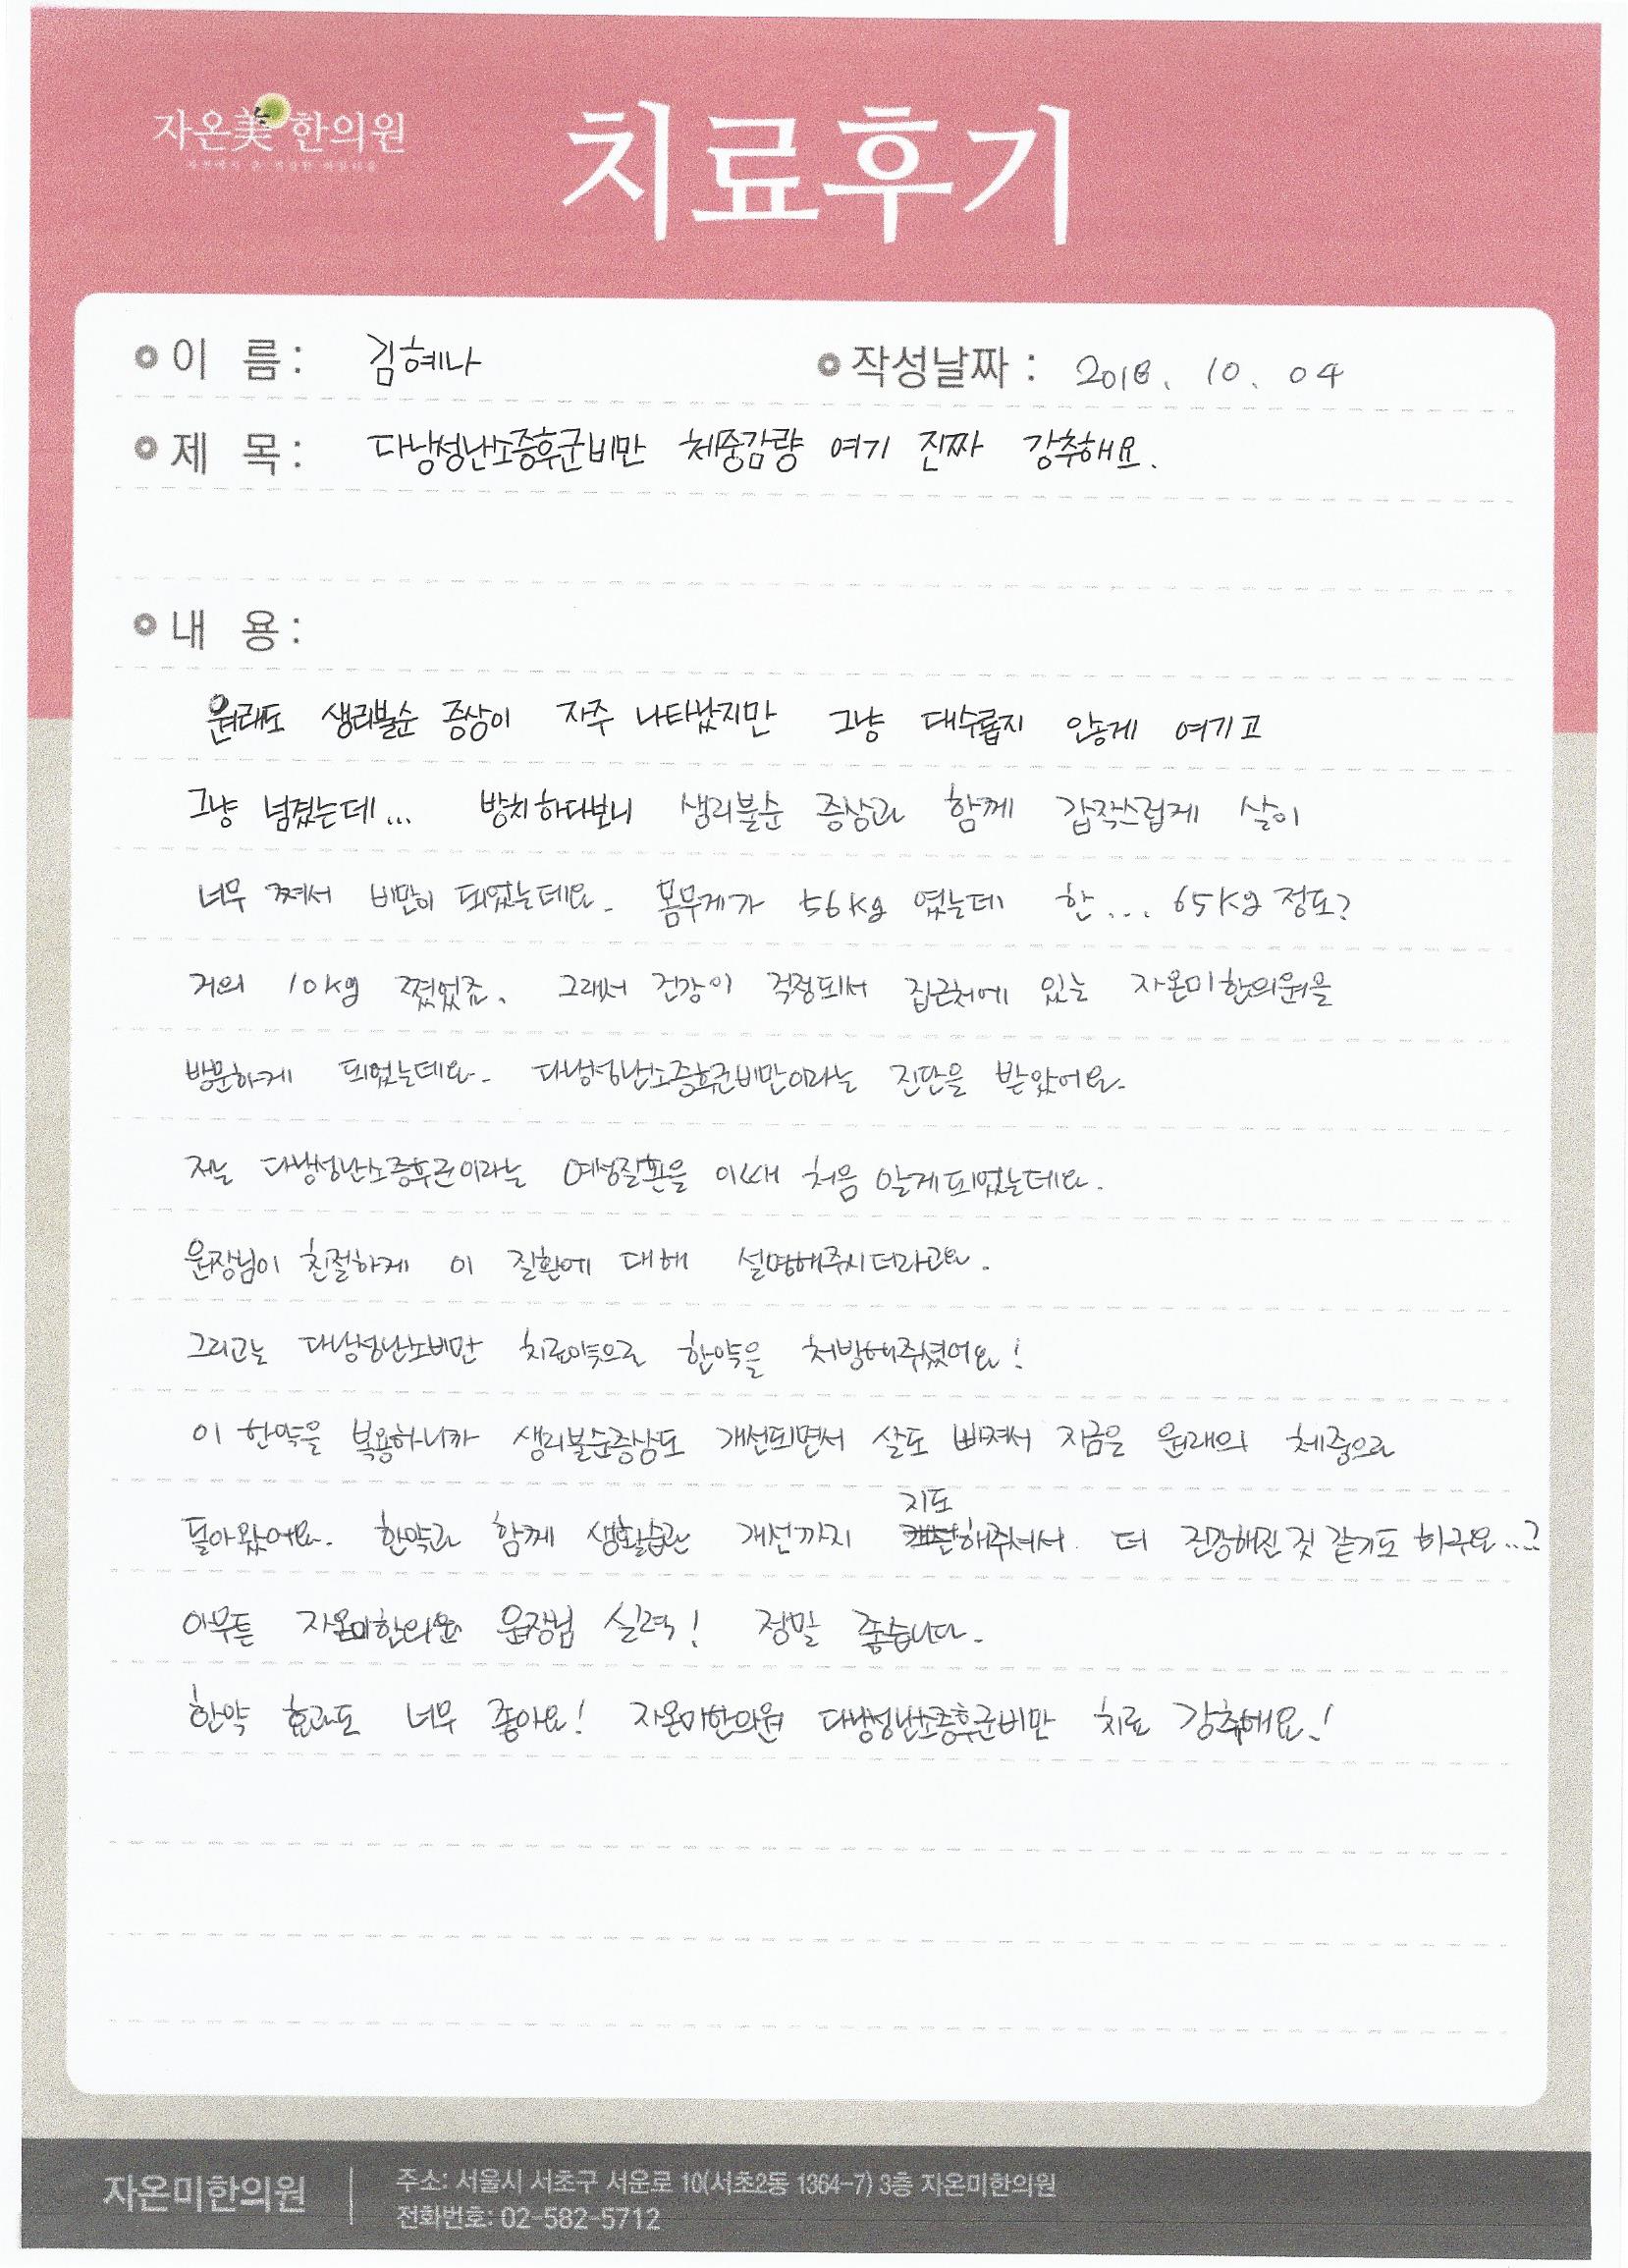 자온美한의원
자연에서 온 건강한 아름다움
치료후기
이 름: 김혜나
작성날짜: 2018. 10. 04
제 목: 다낭성난소증후군비만 체중감량 여기 진짜 강추해요.
내 용:
원래도 생리불순 증상이 자주 나타났지만 그냥 대수롭지 않게 여기고
그냥 넘겼는데... 방치하다보니 생리불순 증상과 함께 갑작스럽게 살이
너무 쪄서 비만이 되었는데요. 몸무게가 56kg 였는데 한... 65kg 정도?
거의 10kg 쪘었죠. 그래서 건강이 걱정되서 집근처에 있는 자온미한의원을
방문하게 되었는데요. 다낭성난소증후군비만이라는 진단을 받았어요.
저는 다낭성난소증후군이라는 여성질환을 이때 처음 알게되었는데요.
원장님이 친절하게 이 질환에 대해 설명해주시더라고요.
그리고는 다낭성난소비만 치료약으로 한약을 처방해주셨어요!
이 한약을 복용하니까 생리불순증상도 개선되면서 살도 빠져서 지금은 원래의 체중으로
돌아왔어요. 한약과 함께 생활습관 개선까지 지도해주셔서 더 건강해진 것 같기도 하구요...?
아무튼 자온미한의원 원장님 실력! 정말 좋습니다.
한약 효과도 너무 좋아요! 자온미한의원 다낭성난소증후군비만 치료 강추해요!
자온미한의원
주소: 서울시 서초구 서운로 10(서초2동 1364-7) 3층 자온미한의원
전화번호: 02-582-5712